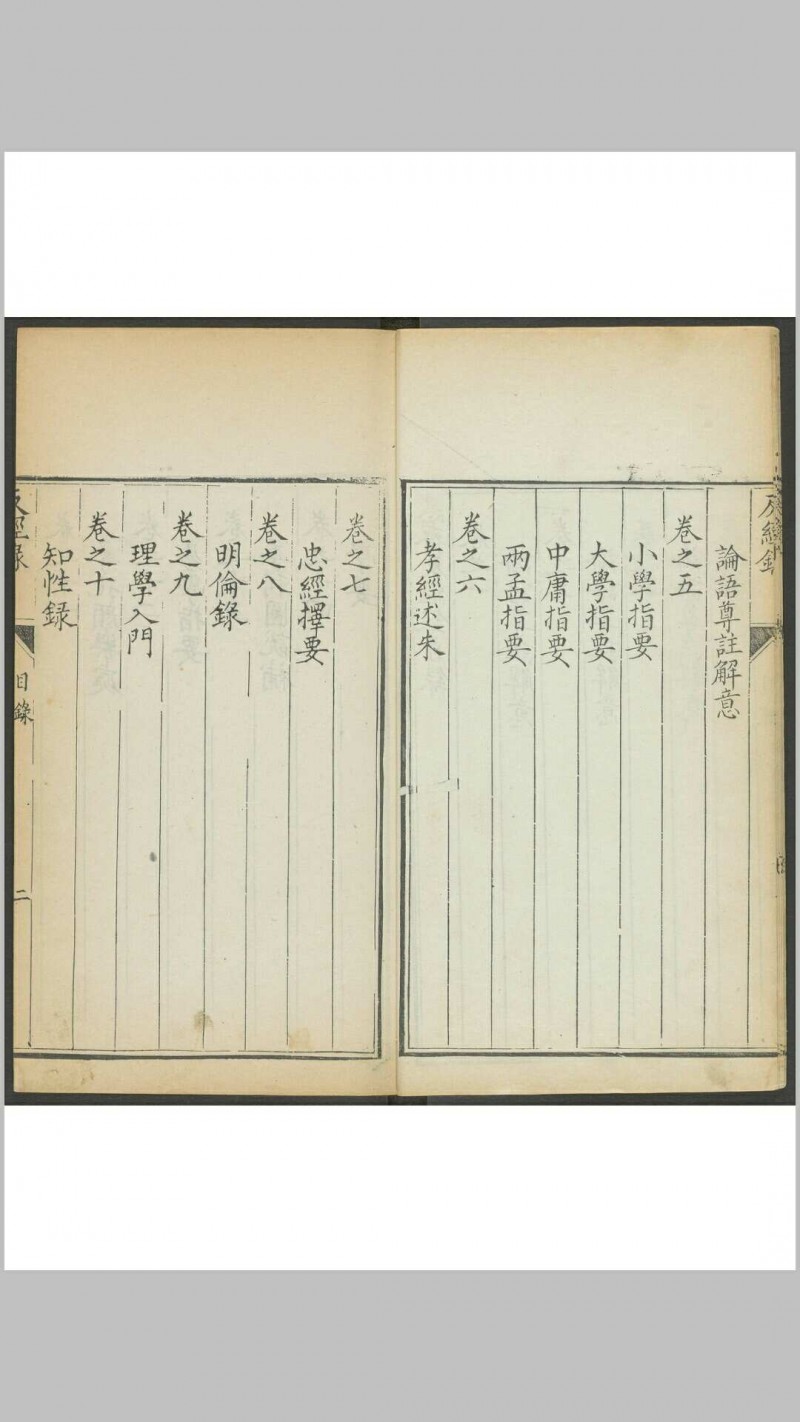 反經錄
論語尊註解意
卷之五
小學指要
大學指要
中庸指要
兩孟指要
卷之六
孝經述朱
卷之七
忠經擇要
卷之八
明倫錄
卷之九
理學入門
卷之十
知性録
反經錄
目錄
二